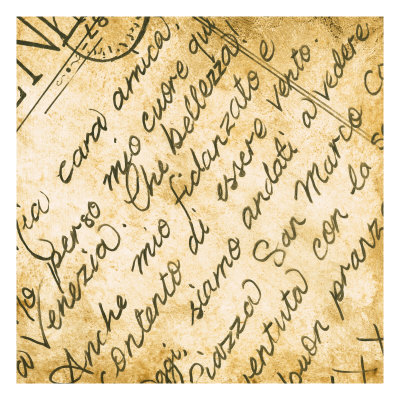 EN
Mia cara amica,
Ho perso mio cuore qui
a Venezia. Che bellezza!
Anche mio fidanzato e
contento di essere vento.
Oggi, siamo andati a vedere
Piazza San Marco co
ventuta con la se
buon pranz